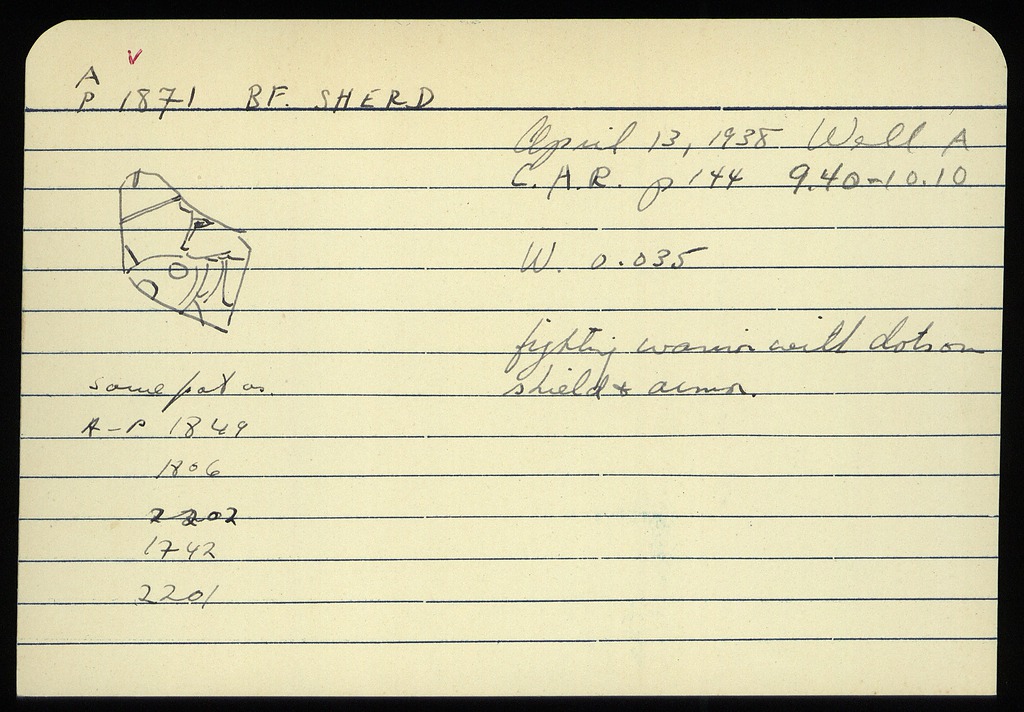 A
P 1871 BF. SHERD
April 13, 1938 Well A
C.A.R. p 144 9.40-10.10
W. 0.035
fighting warrior with dots on
shield & armor.
same pot as
A-P 1849
1806
2202
1742
2201